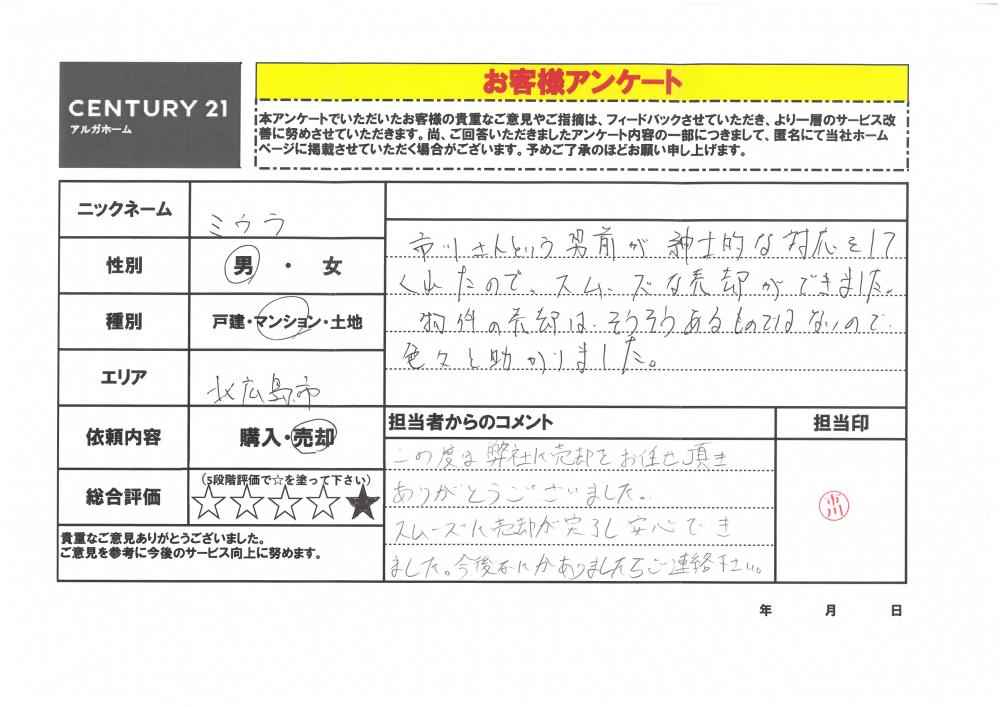 CENTURY 21
アルガホーム
お客様アンケート
本アンケートでいただいたお客様の貴重なご意見やご指摘は、フィードバックさせていただき、より一層のサービス改
善に努めさせていただきます。尚、ご回答いただきましたアンケート内容の一部につきまして、匿名にて当社ホーム
ページに掲載させていただく場合がございます。予めご了承のほどお願い申し上げます。
ニックネーム
ミウラ
性別
男・女
種別
戸建・マンション・土地
エリア
北広島市
依頼内容
購入・売却
総合評価
(5段階評価で☆を塗って下さい)
☆☆☆☆★
貴重なご意見ありがとうございました。
ご意見を参考に今後のサービス向上に努めます。
市川さんという男前が紳士的な対応をして
くれたので、スムーズな売却ができました。
物件の売却は、そうそうあるものではないので
色々と助かりました。
担当者からのコメント
担当印
この度は弊社に売却をお任せ頂き
ありがとうございました。
スムーズに売却が完了し安心でき
ました。今後なにかありましたらご連絡下さい。
市川
年 月 日